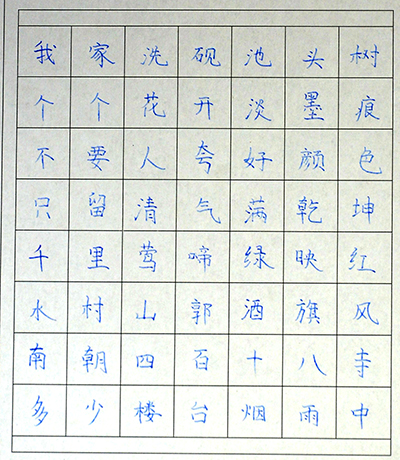 我家洗砚池头树
个个花开淡墨痕
不要人夸好颜色
只留清气满乾坤
千里莺啼绿映红
水村山郭酒旗风
南朝四百十八寺
多少楼台烟雨中